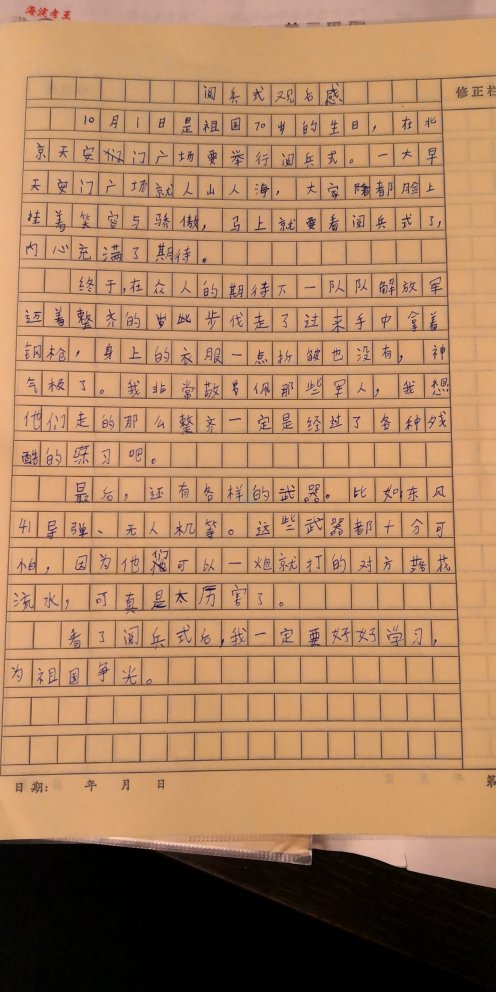 海淀考王
阅兵式观后感
修正栏
10月1日是祖国70岁的生日，在北
京天安门广场要举行阅兵式。一大早
天安门广场就人山人海，大家都脸上
挂着笑容与骄傲，马上就要看阅兵式了，
内心充满了期待。
终于，在众人的期待下一队队解放军
迈着整齐的步伐走了过来手中拿着
钢枪，身上的衣服一点折皱也没有，神
气极了。我非常敬佩那些军人，我想
他们走的那么整齐一定是经过了各种残
酷的练习吧。
最后，还有各样的武器。比如东风
41导弹、无人机等。这些武器都十分可
怕，因为他们可以一炮就打的对方落花
流水，可真是太厉害了。
看了阅兵式后，我一定要好好学习，
为祖国争光。
日期：　年　月　日
第